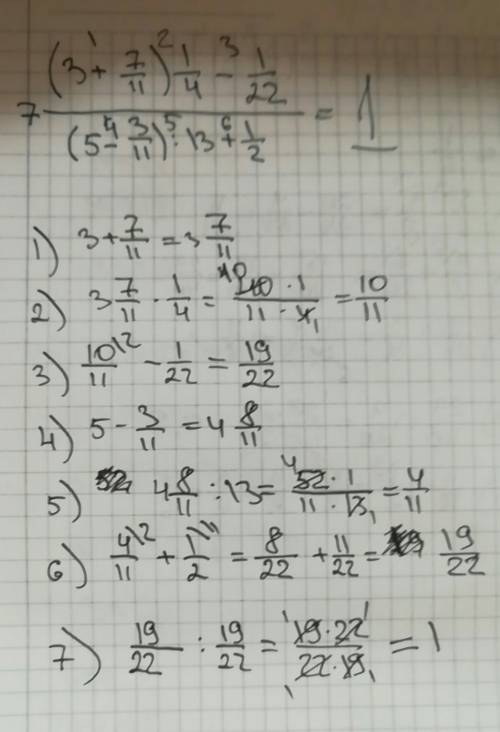 7 ((3 + 7/11) 1/4 - 1/22) / ((5 - 3/11) : 13 + 1/2) = 1
1) 3 + 7/11 = 3 7/11
2) 3 7/11 · 1/4 = 40 · 1 / 11 · 4 = 10/11
3) 10/11 - 1/22 = 19/22
4) 5 - 3/11 = 4 8/11
5) 4 8/11 : 13 = 52 · 1 / 11 · 13 = 4/11
6) 4/11 + 1/2 = 8/22 + 11/22 = 19/22
7) 19/22 : 19/22 = 19 · 22 / 22 · 19 = 1